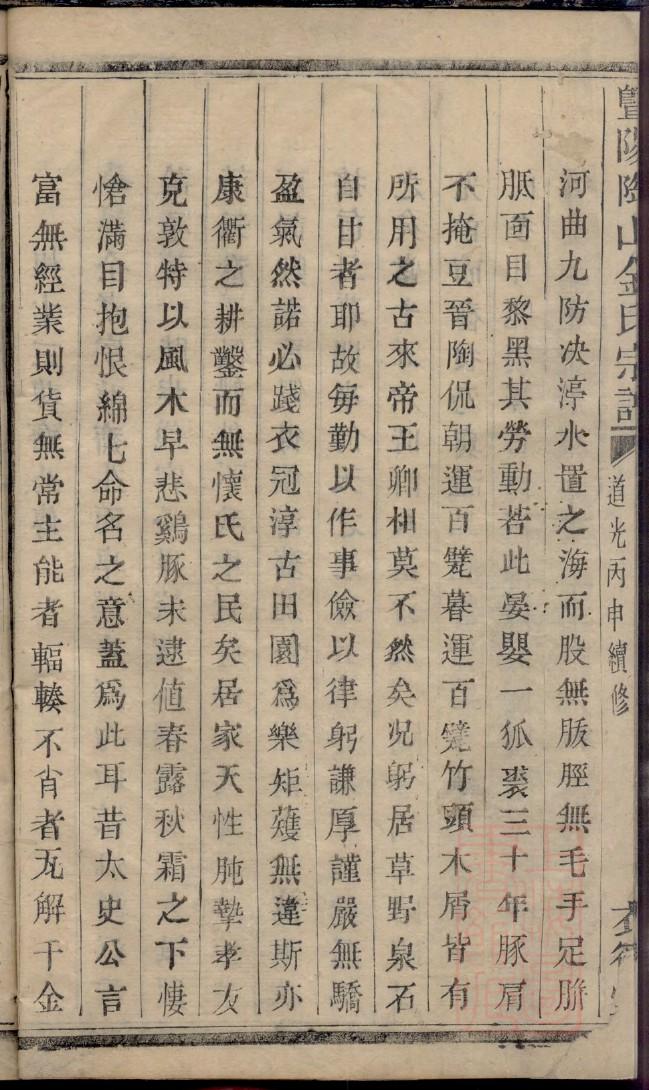 暨陽陶山金氏宗譜
道光丙申續修
河曲九防决渟水置之海而股無胈脛無毛手足胼
胝面目黎黑其勞動若此晏嬰一狐裘三十年豚肩
不掩豆晉陶侃朝運百甓暮運百甓竹頭木屑皆有
所用之古來帝王卿相莫不然矣况躬居草野泉石
自甘者耶故每勤以作事儉以律躬謙厚謹嚴無驕
盈氣然諾必踐衣冠淳古田園爲樂矩矱無違斯亦
康衢之耕鑿而無懷氏之民矣居家天性肫摯孝友
克敦特以風木早悲鷄豚未逮值春露秋霜之下悽
愴滿目抱恨綿七命名之意蓋爲此耳昔太史公言
富無經業則貨無常主能者輻輳不肖者瓦解千金